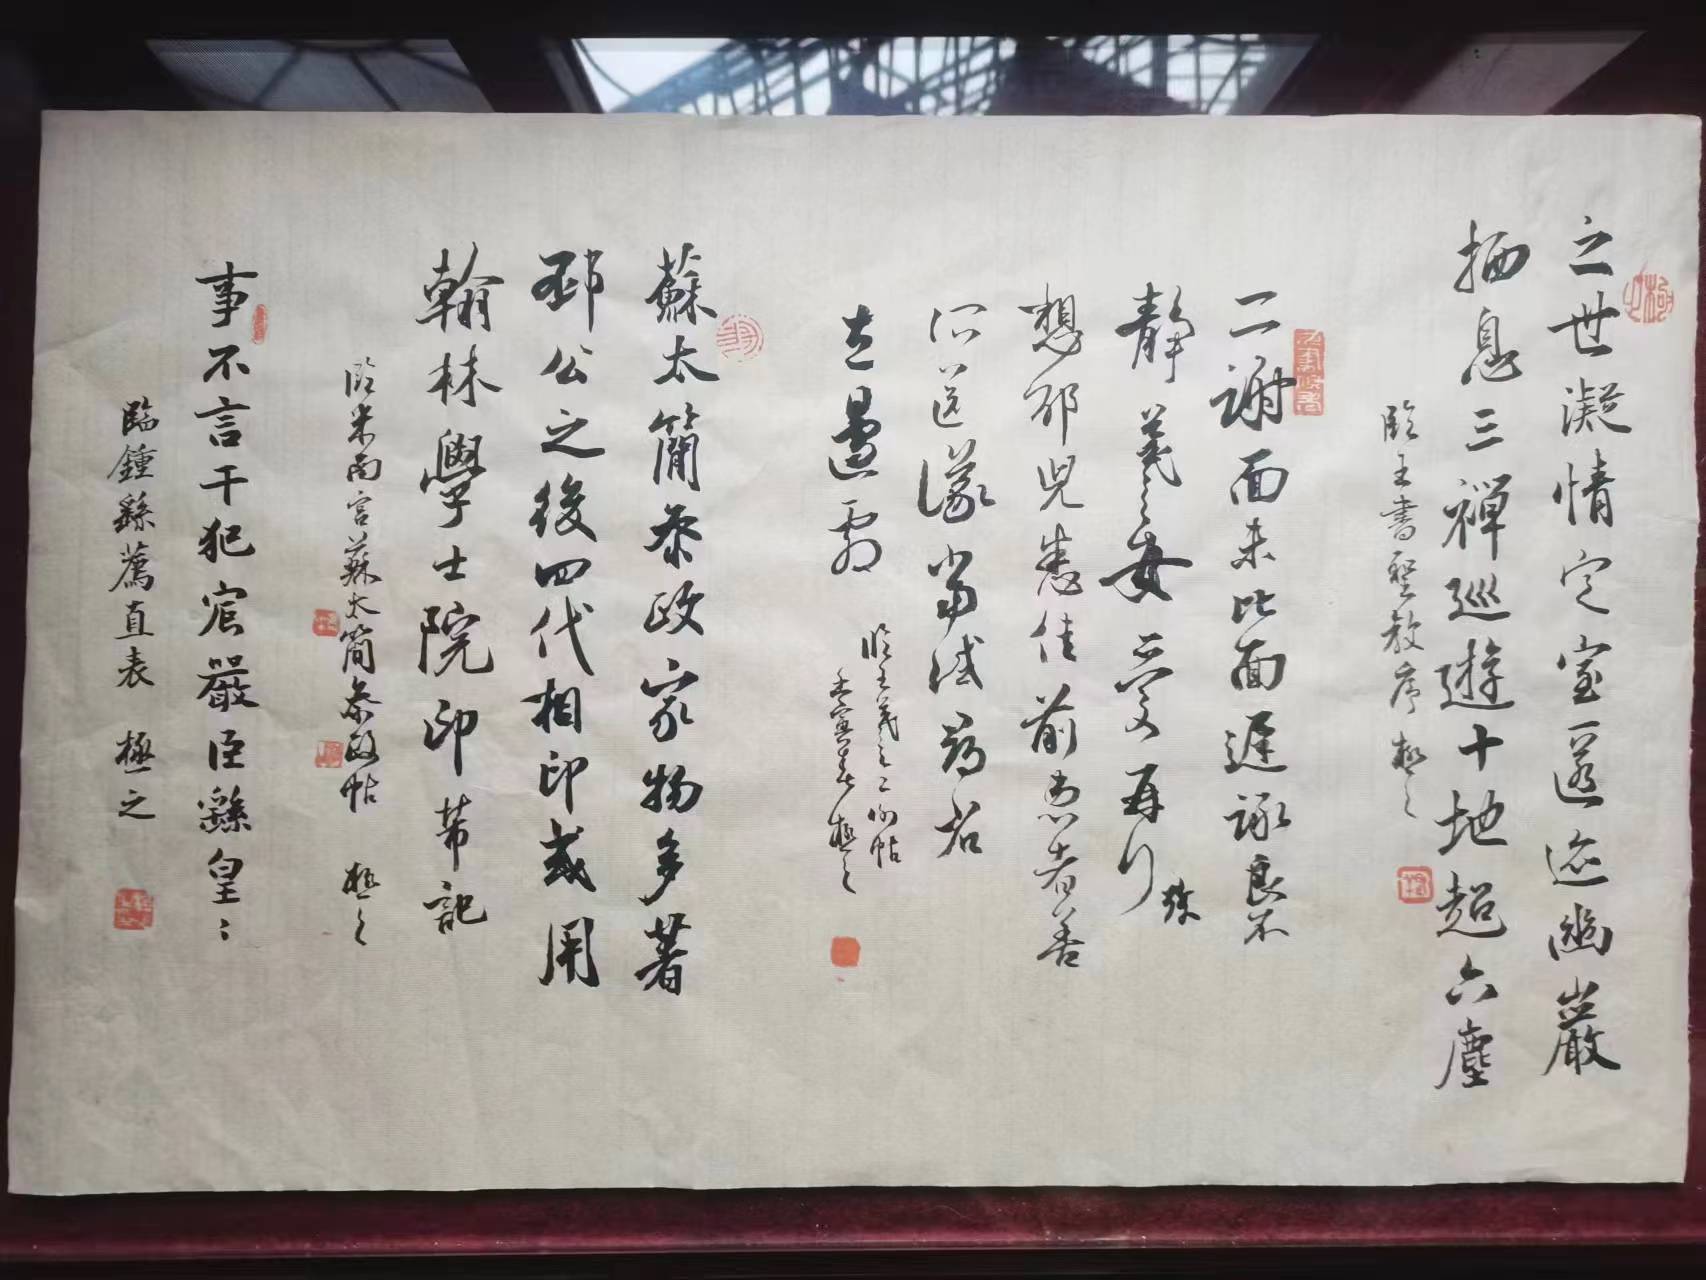 之世凝情定室匿迹幽巖
栖息三禪巡遊十地超六塵
臨王書聖教序 極之
二謝面未比面遲詠良不
靜羲之女愛愛再行
想邵兒悉佳前患者善
所送議當試尋省
左邊劇
臨王羲之二謝帖
壬寅春極之
蘇太簡参政家物多著
邳公之後四代相印或用
翰林學士院印芾記
臨米南宮蘇太簡参政帖 極之
事不言干犯宸嚴臣繇皇〻
臨鍾繇薦直表 極之